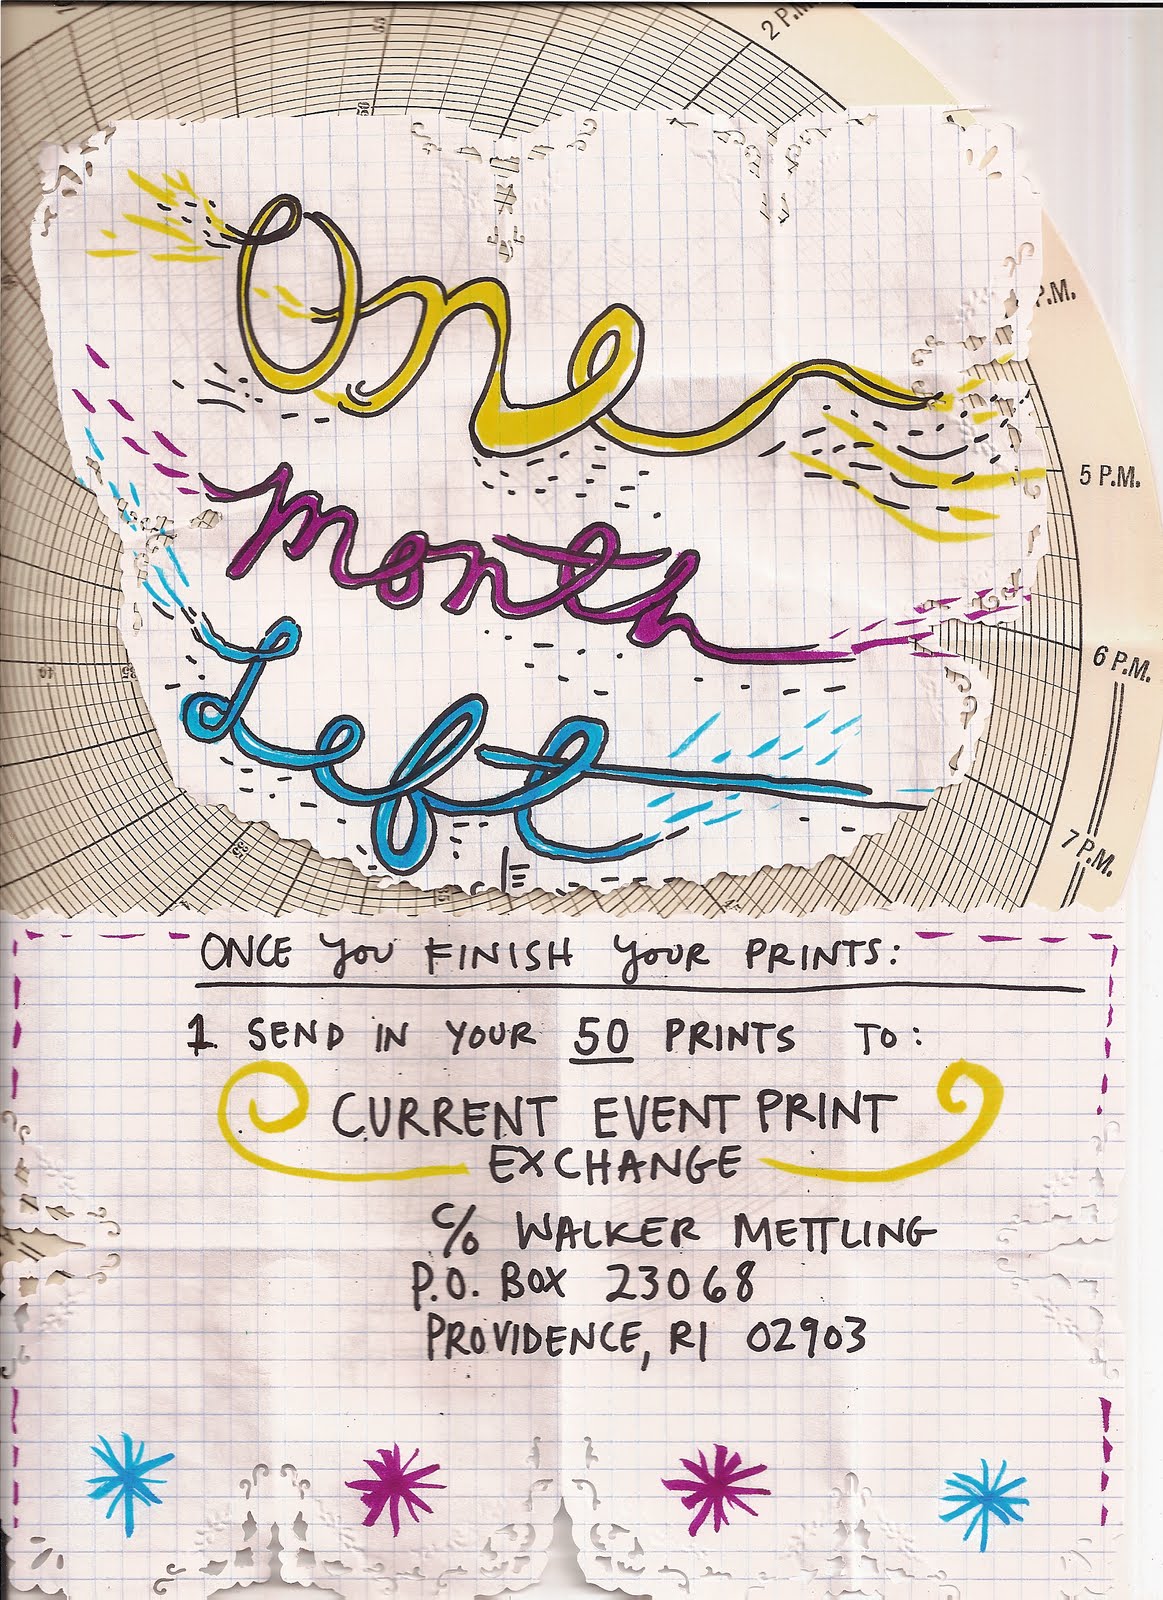 2 P.M.
P.M.
5 P.M.
6 P.M.
7 P.M.
One
month
Left
ONCE YOU FINISH YOUR PRINTS:
1. SEND IN YOUR 50 PRINTS TO:
CURRENT EVENT PRINT
EXCHANGE
C/O WALKER METTLING
P.O. BOX 23068
PROVIDENCE, RI 02903